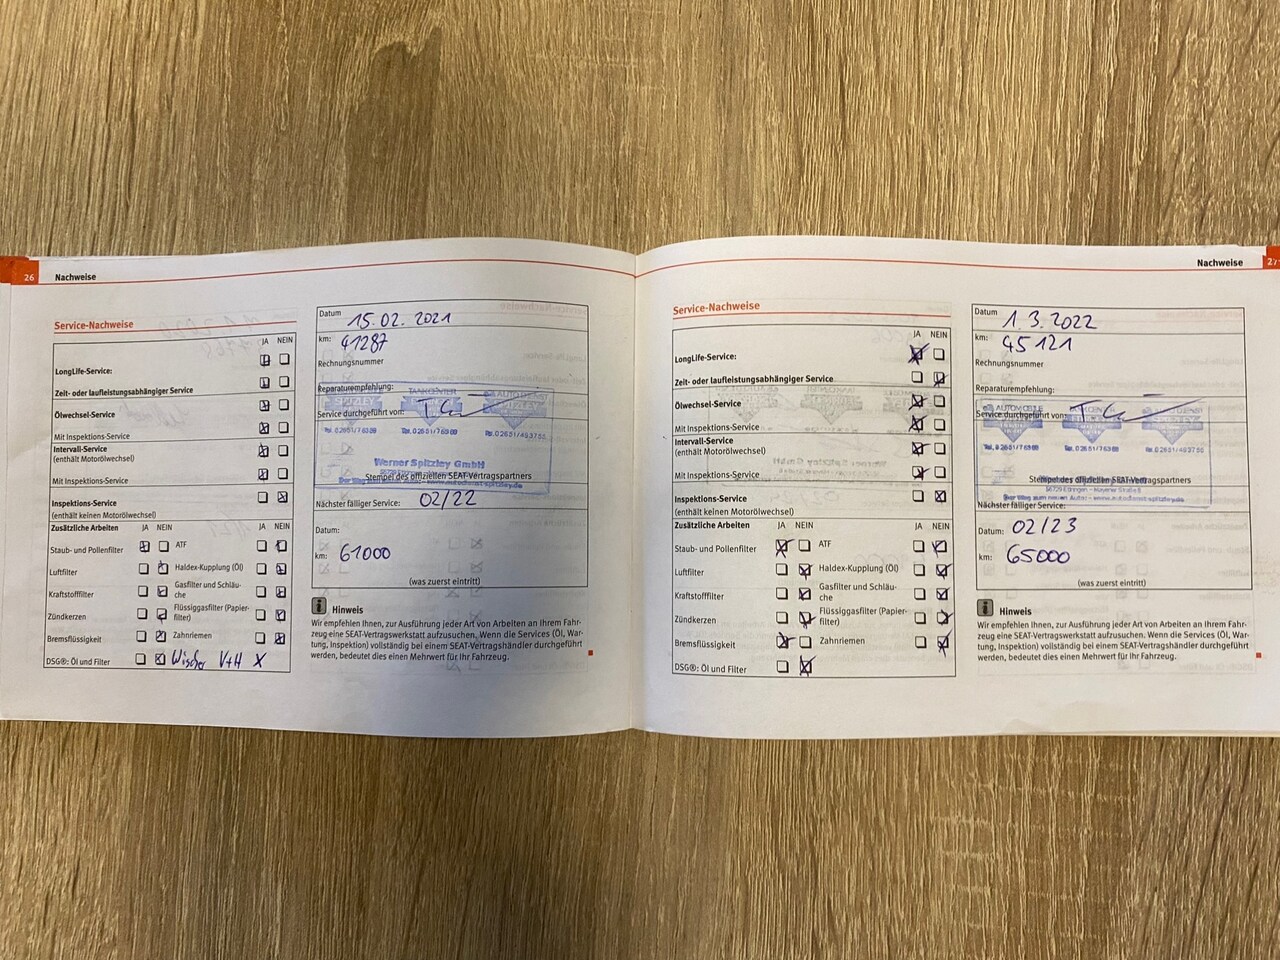 26 Nachweise
Service-Nachweise
JA NEIN
LongLife-Service:
Zeit- oder laufleistungsabhängiger Service
Ölwechsel-Service
Mit Inspektions-Service
Intervall-Service
(enthält Motorölwechsel)
Mit Inspektions-Service
Inspektions-Service
(enthält keinen Motorölwechsel)
Zusätzliche Arbeiten JA NEIN JA NEIN
Staub- und Pollenfilter ATF
Luftfilter Haldex-Kupplung (Öl)
Kraftstofffilter Gasfilter und Schläu-
che
Zündkerzen Flüssiggasfilter (Papier-
filter)
Bremsflüssigkeit Zahnriemen
DSG®: Öl und Filter Wischer V+H X
Datum 15.02.2021
km: 41287
Rechnungsnummer
Reparaturempfehlung:
Service durchgeführt von:
Werner Spitzley GmbH
Stempel des offiziellen SEAT-Vertragspartners
Nächster fälliger Service: 02/22
Datum:
km: 61000
(was zuerst eintritt)
Hinweis
Wir empfehlen Ihnen, zur Ausführung jeder Art von Arbeiten an Ihrem Fahr-
zeug eine SEAT-Vertragswerkstatt aufzusuchen. Wenn die Services (Öl, War-
tung, Inspektion) vollständig bei einem SEAT-Vertragshändler durchgeführt
werden, bedeutet dies einen Mehrwert für Ihr Fahrzeug.
Nachweise 27
Service-Nachweise
JA NEIN
LongLife-Service:
Zeit- oder laufleistungsabhängiger Service
Ölwechsel-Service
Mit Inspektions-Service
Intervall-Service
(enthält Motorölwechsel)
Mit Inspektions-Service
Inspektions-Service
(enthält keinen Motorölwechsel)
Zusätzliche Arbeiten JA NEIN JA NEIN
Staub- und Pollenfilter ATF
Luftfilter Haldex-Kupplung (Öl)
Kraftstofffilter Gasfilter und Schläu-
che
Zündkerzen Flüssiggasfilter (Papier-
filter)
Bremsflüssigkeit Zahnriemen
DSG®: Öl und Filter
Datum 1.3.2022
km: 45121
Rechnungsnummer
Reparaturempfehlung:
Service durchgeführt von:
Stempel des offiziellen SEAT-Vertragspartners
Nächster fälliger Service:
Datum: 02/23
km: 65000
(was zuerst eintritt)
Hinweis
Wir empfehlen Ihnen, zur Ausführung jeder Art von Arbeiten an Ihrem Fahr-
zeug eine SEAT-Vertragswerkstatt aufzusuchen. Wenn die Services (Öl, War-
tung, Inspektion) vollständig bei einem SEAT-Vertragshändler durchgeführt
werden, bedeutet dies einen Mehrwert für Ihr Fahrzeug.